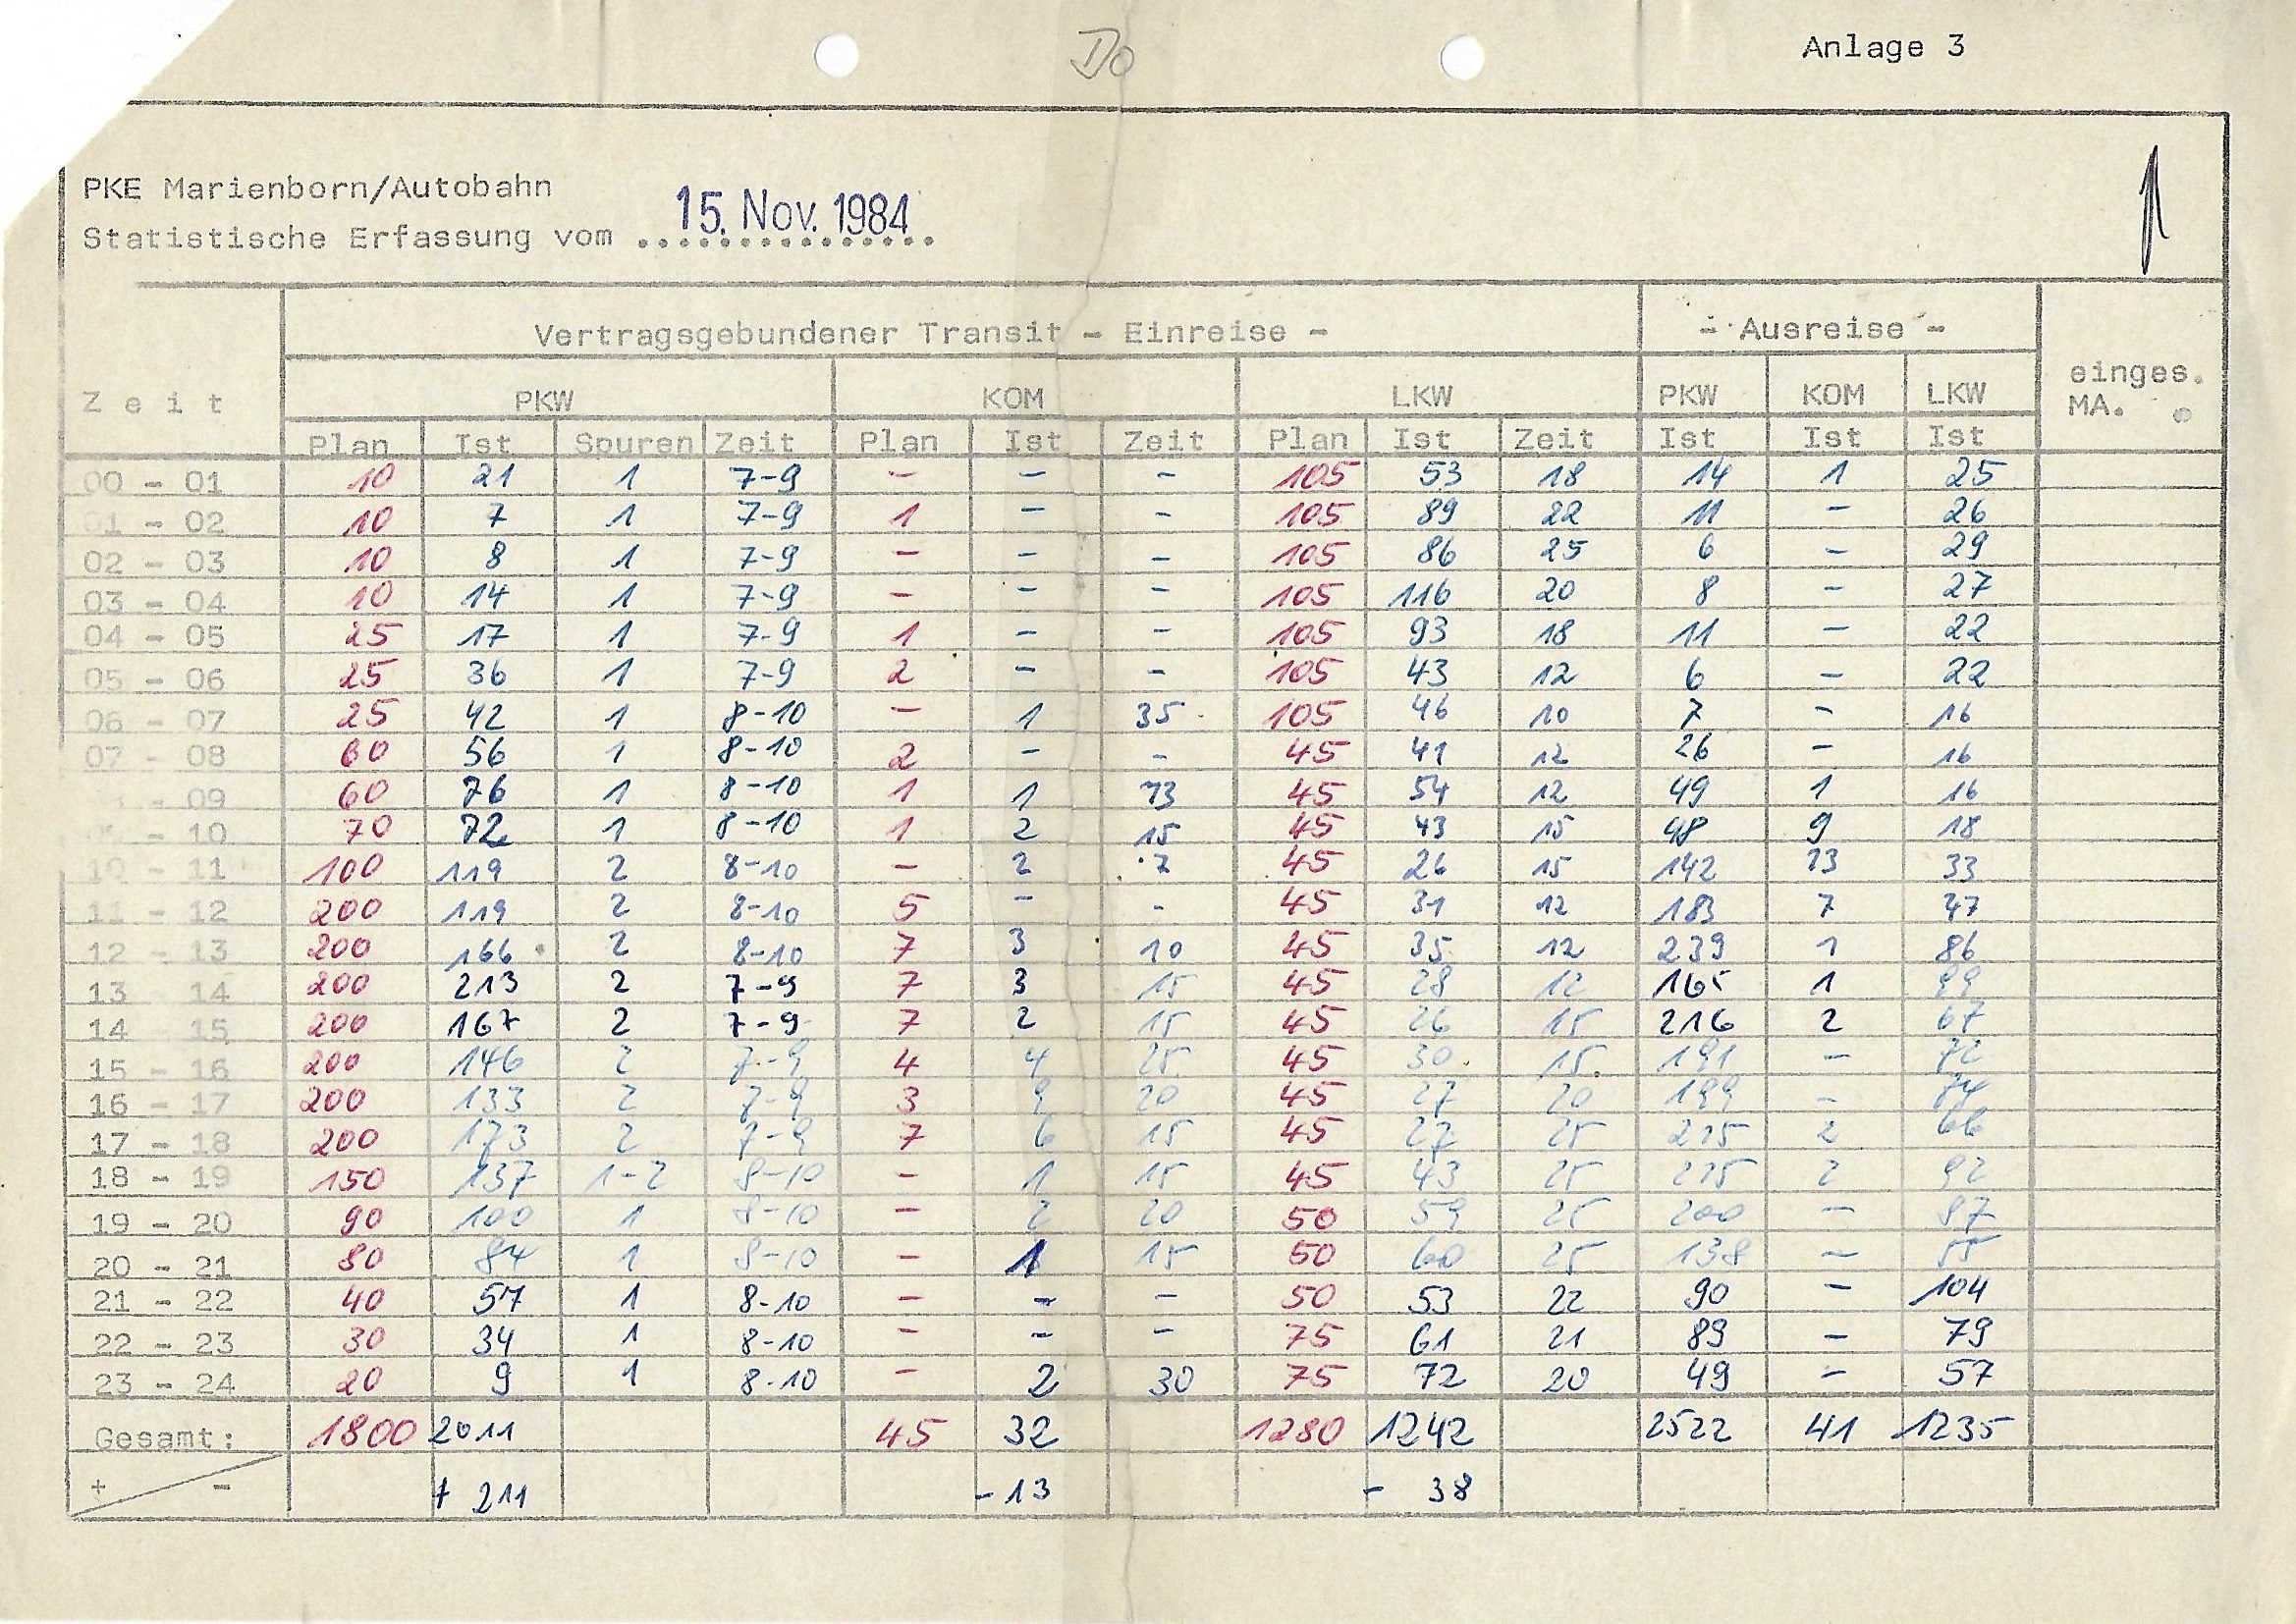 Do
Anlage 3
PKE Marienborn/Autobahn
Statistische Erfassung vom 15. Nov. 1984
Vertragsgebundener Transit - Einreise - - Ausreise -
Zeit PKW KOM LKW PKW KOM LKW einges. MA.
Plan Ist Spuren Zeit Plan Ist Zeit Plan Ist Zeit Ist Ist Ist
00 - 01 10 21 1 7-9 - - - 105 53 18 14 1 25
- 02 10 7 1 7-9 1 - - 105 89 22 11 - 26
02 - 03 10 8 1 7-9 - - - 105 86 25 6 - 29
03 - 04 10 14 1 7-9 - - - 105 116 20 8 - 27
04 - 05 25 17 1 7-9 1 - - 105 93 18 11 - 22
05 - 06 25 36 1 7-9 2 - - 105 43 12 6 - 22
06 - 07 25 42 1 8-10 - 1 35 105 46 10 7 - 16
07 - 08 60 56 1 8-10 2 - - 45 41 12 26 - 16
- 09 60 76 1 8-10 1 1 13 45 54 12 49 1 16
- 10 70 72 1 8-10 1 2 15 45 43 15 98 9 18
10 - 11 100 119 2 8-10 - 2 7 45 26 15 142 13 33
11 - 12 200 119 2 8-10 5 - - 45 31 12 183 7 47
12 - 13 200 166 2 8-10 7 3 10 45 35 12 239 1 86
13 14 200 213 2 7-9 7 3 15 45 28 12 165 1 99
14 15 200 167 2 7-9 7 2 15 45 26 15 216 2 67
15 - 16 200 146 2 7-9 4 4 25 45 30 15 191 - 72
16 - 17 200 133 2 7-9 3 9 20 45 27 20 199 - 74
17 - 18 200 173 2 7-9 7 6 15 45 27 25 215 2 66
18 - 19 150 137 1-2 8-10 - 1 15 45 43 25 225 2 92
19 - 20 90 100 1 8-10 - 2 20 50 59 25 200 - 87
20 - 21 80 84 1 8-10 - 1 15 50 60 25 138 - 55
21 - 22 40 57 1 8-10 - - - 50 53 22 90 - 104
22 - 23 30 34 1 8-10 - - - 75 61 21 89 - 79
23 - 24 20 9 1 8-10 - 2 30 75 72 20 49 - 57
Gesamt: 1800 2011 45 32 1280 1242 2522 41 1235
+ - + 211 - 13 - 38